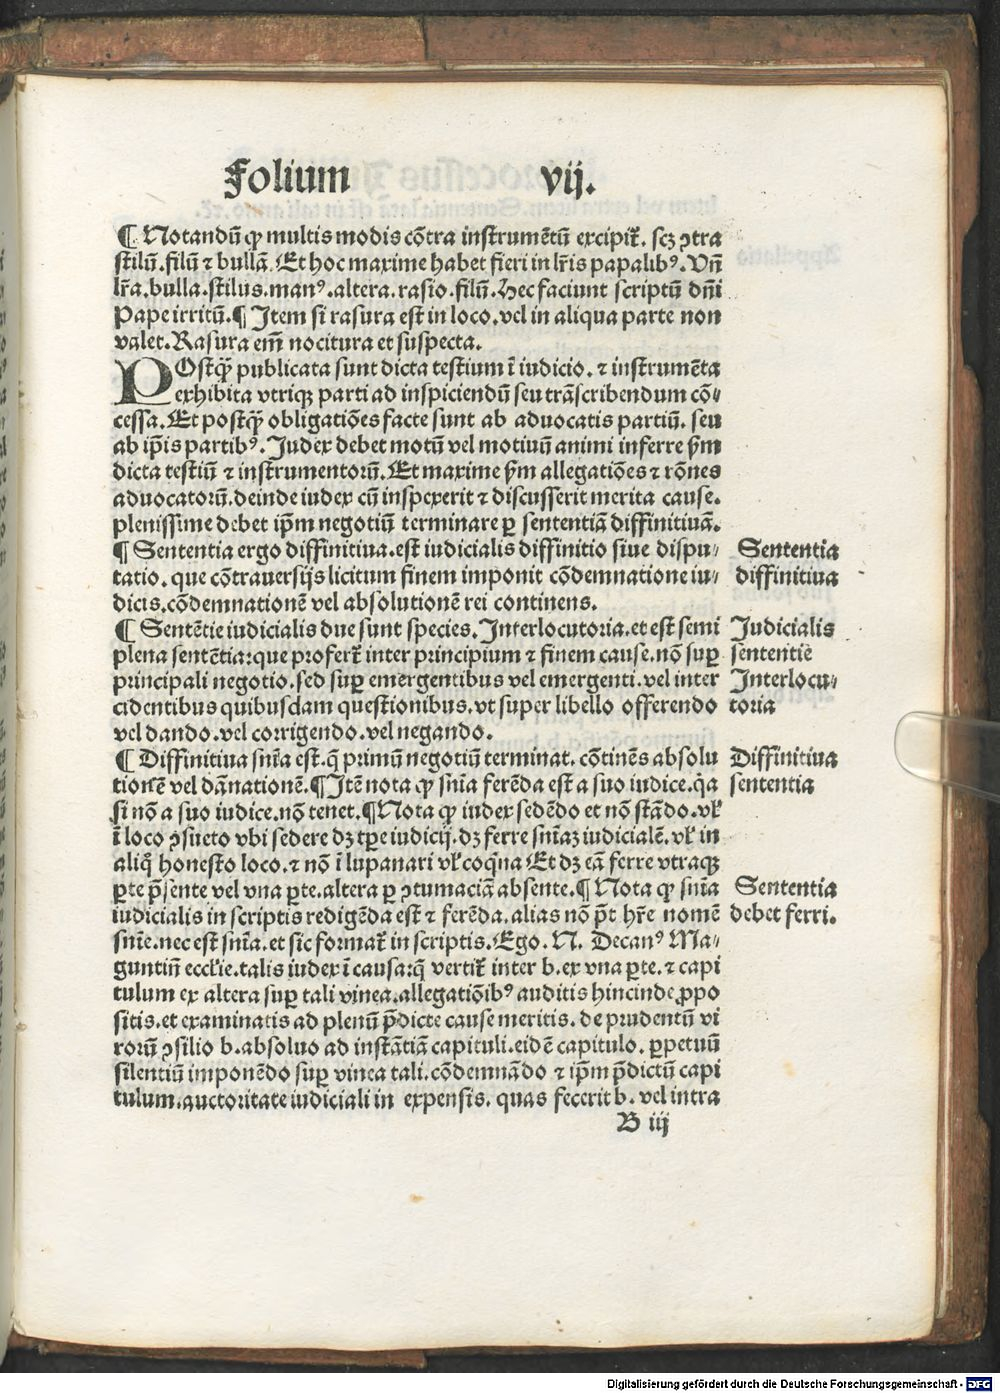 Folium vij.
¶ Notandū ꝙ multis modis cōtra instrumētū excipit᷑. scꝫ ꝯtra
stilū. filū ⁊ bullā. Et hoc maxime habet fieri in lr̄is papalibꝰ. Vn̄
lr̄a. bulla. stilus. manꝰ. altera. rasio. filū. Hec faciunt scriptū dn̄i
Pape irritū. ¶ Item si rasura est in loco. vel in aliqua parte non
valet. Rasura em̄ nocitura et suspecta.
POstq̄ȝ publicata sunt dicta testium ī iudicio. ⁊ instrumēta
exhibita vtriqꝫ parti ad inspiciendū seu trāscribendum cō⸗
cessa. Et postq̄ȝ obligatiōes facte sunt ab aduocatis partiū. seu
ab ip̄is partibꝰ. Judex debet motū vel motiuū animi inferre ẜm
dicta testiū ⁊ instrumentorū. Et maxime ẜm allegatiōes ⁊ rōnes
aduocatorū. deinde iudex cū inspexerit ⁊ discusserit merita cause.
plenissime debet ip̄m negotiū terminare ꝑ sententiā diffinitiuā.
¶ Sententia ergo diffinitiua. est iudicialis diffinitio siue dispu⸗
tatio. que cōtrauersijs licitum finem imponit cōdemnatione iu⸗
dicis. cōdemnationē vel absolutionē rei continens.
Sententia
diffinitiua
¶ Sentētie iudicialis due sunt species. Interlocutoria. et est semi
plena sentētia: que profert᷑ inter principium ⁊ finem cause. nō suꝑ
principali negotio. sed suꝑ emergentibus vel emergenti. vel inter
cidentibus quibusdam questionibus. vt super libello offerendo
vel dando. vel corrigendo. vel negando.
Judicialis
sententie
Interlocu⸗
toria
¶ Diffinitiua sn̄ia est. q̄ primū negotiū terminat. cōtinēs absolu
tionē vel dānationē. ¶ Itē nota ꝙ sn̄ia ferēda est a suo iudice. q̇a
si nō a suo iudice. nō tenet. ¶ Nota ꝙ iudex sedēdo et nō stādo. vl̓
ī loco ꝯsueto vbi sedere dꝫ tꝑe iudicij. dꝫ ferre sn̄iaꝫ iudicialē. vl̓ in
aliq̊ honesto loco. ⁊ nō ī lupanari vl̓ coq̇na Et dꝫ eā ferre vtraqꝫ
ꝑte p̄sente vel vna ꝑte. altera ꝑ ꝯtumaciā absente. ¶ Nota ꝙ sn̄ia
iudicialis in scriptis redigēda est ⁊ ferēda. alias nō p̄t hr̄e nomē
sn̄ie. nec est sn̄ia. et sic format᷑ in scriptis. Ego. N. Decanꝰ Ma⸗
guntin̄ eccl̓ie. talis iudex ī causa: q̄ vertit᷑ inter b. ex vna ꝑte. ⁊ capi
tulum ex altera suꝑ tali vinea. allegatiōibꝰ auditis hincinde ꝓpo
sitis. et examinatis ad plenū p̄dicte cause meritis. de prudentū vi
rorū ꝯsilio b. absoluo ad instātiā capituli. eidē capitulo. ꝑpetuū
silentiū imponēdo suꝑ vinea tali. cōdemnādo ⁊ ip̄m p̄dictū capi
tulum. auctoritate iudiciali in expensis. quas fecerit b. vel intra
Diffinitiua
sententia
Sententia
debet ferri.
B iij
Digitalisierung gefördert durch die Deutsche Forschungsgemeinschaft - DFG